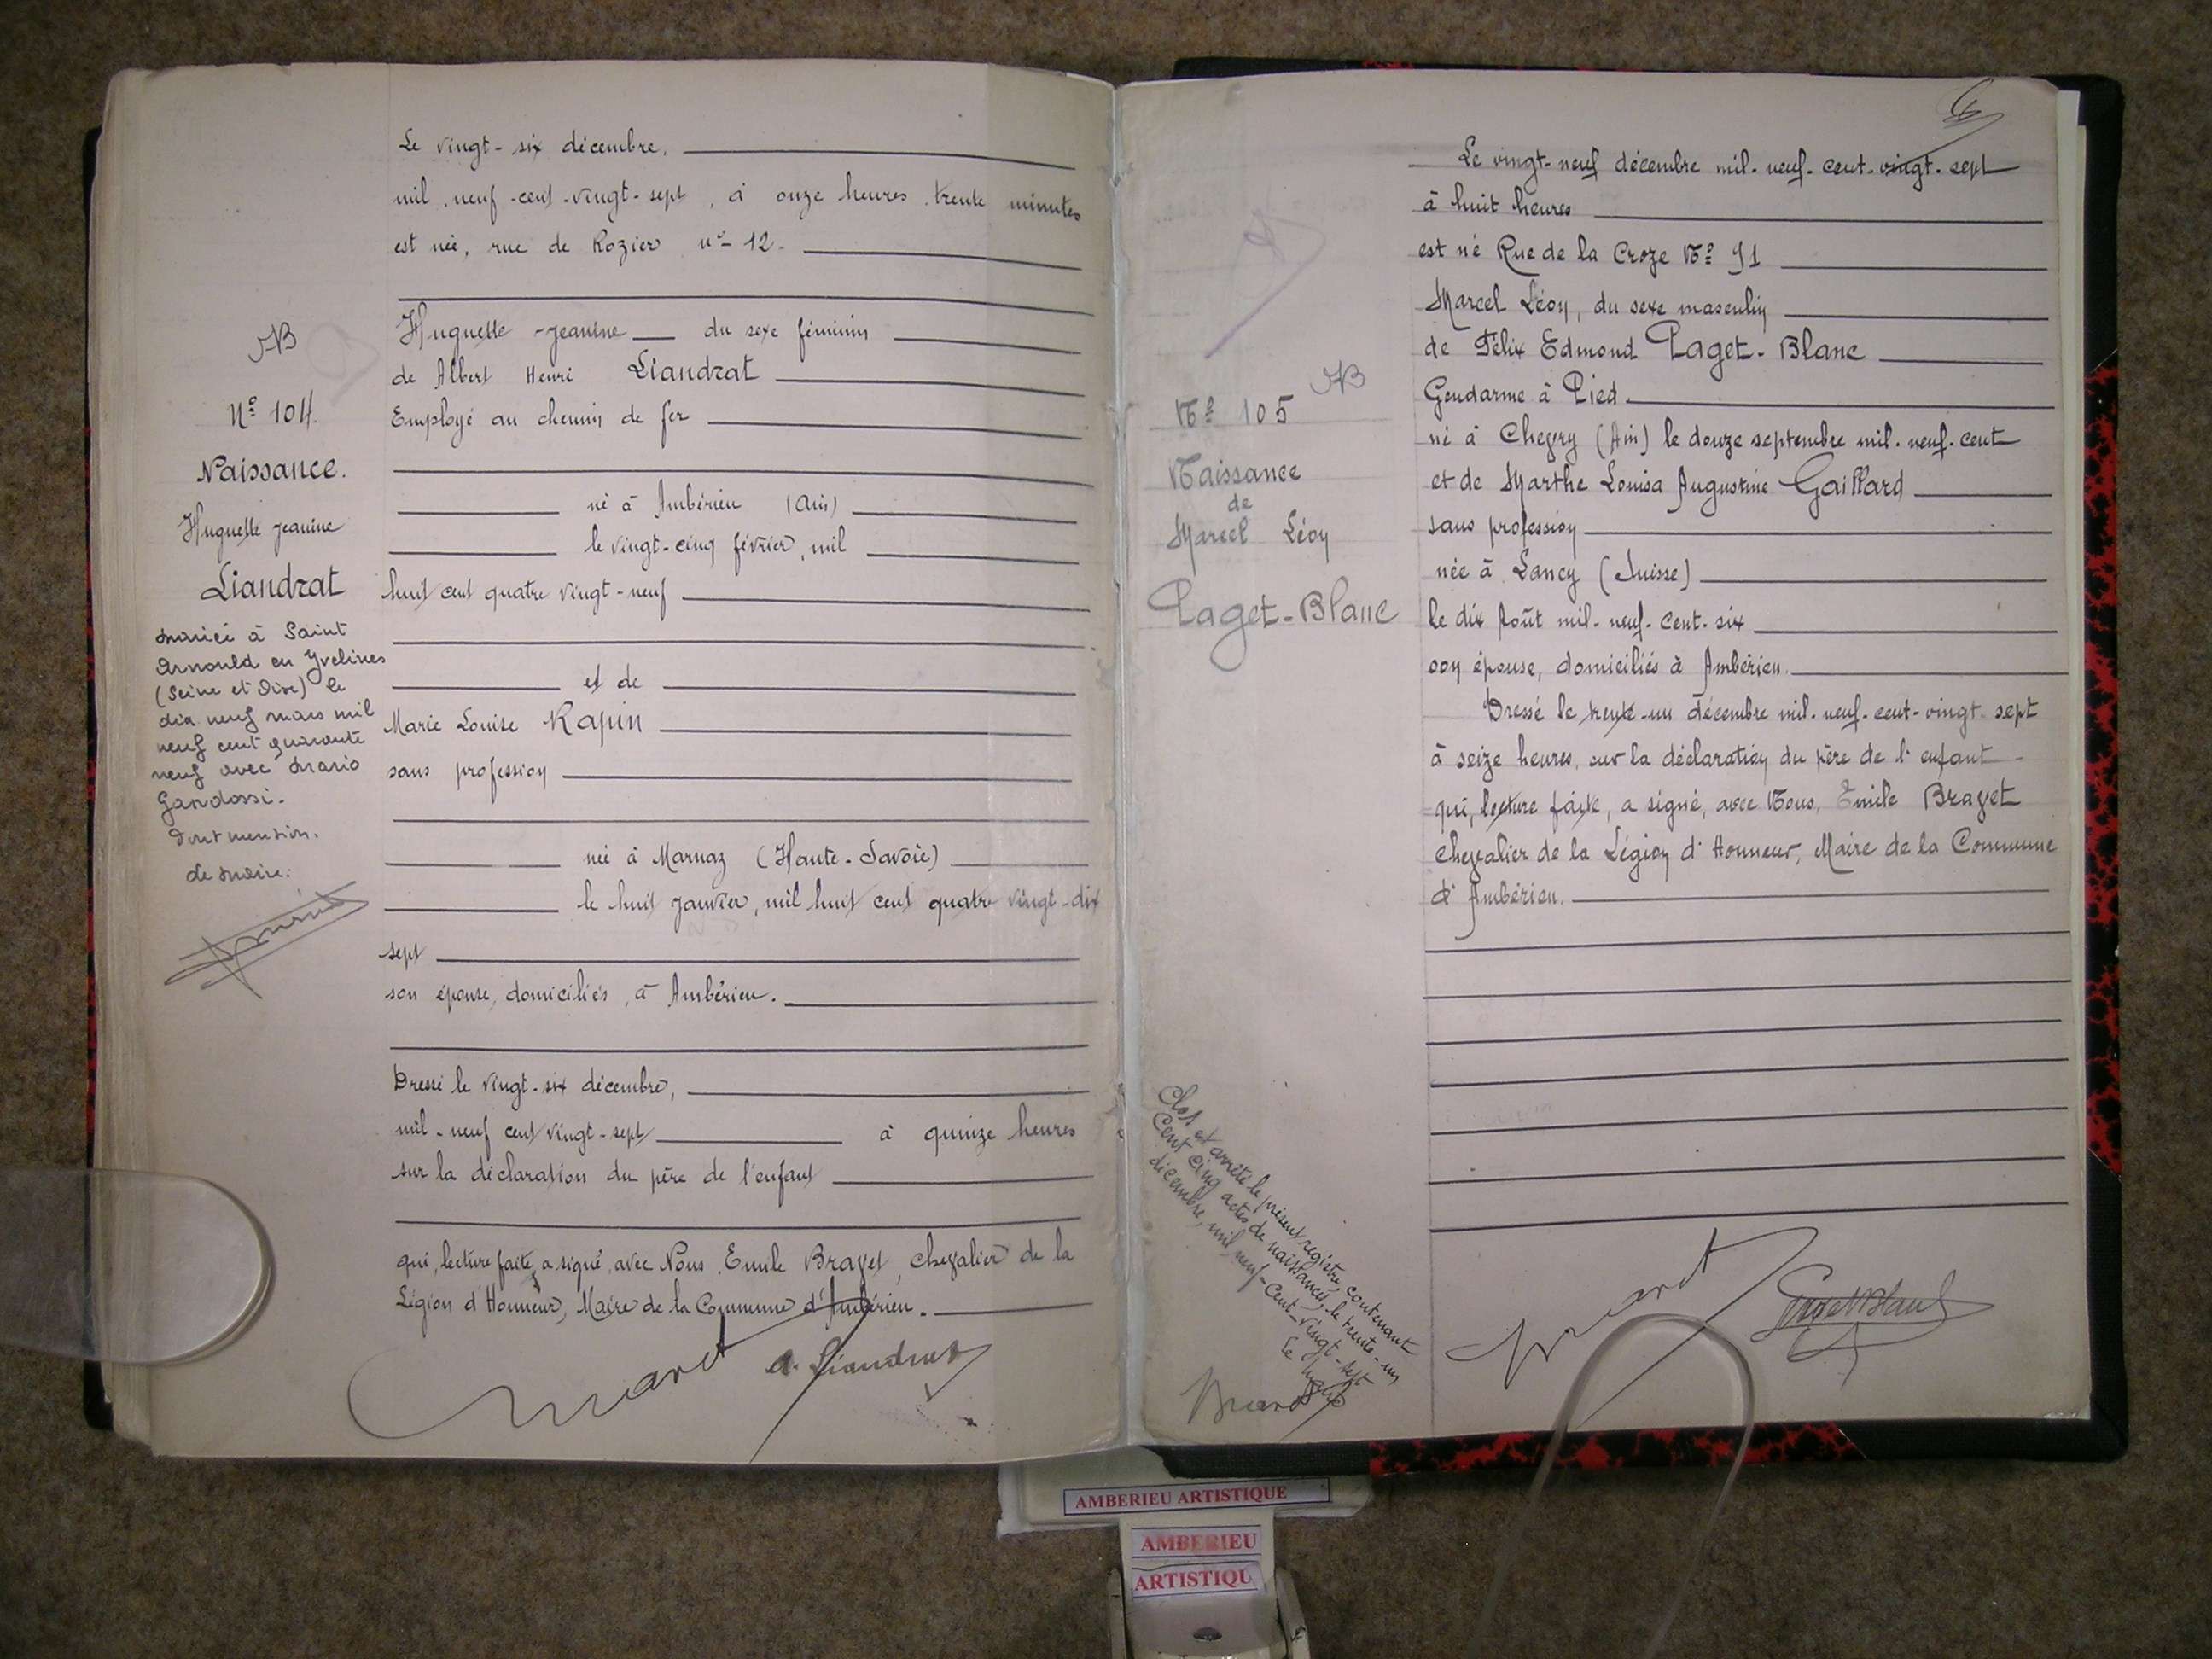 Le vingt-six décembre,
mil neuf-cent-vingt-sept, à onze heures trente minutes
est née, rue de Rozier n° 12.
Huguette-Jeanine du sexe féminin
de Albert Henri Liandrat
Employé au chemin de fer
né à Ambérieu (Ain)
le vingt-cinq février, mil
huit cent quatre vingt-neuf
et de
Marie Louise Rapin
sans profession
née à Marnaz (Haute-Savoie)
le huit janvier, mil huit cent quatre vingt-dix
sept
son épouse, domiciliés, à Ambérieu.
Dressé le vingt-six décembre,
mil-neuf cent vingt-sept à quinze heures
sur la déclaration du père de l'enfant
qui, lecture faite, a signé, avec Nous, Emile Bravet, chevalier de la
Légion d'Honneur, Maire de la Commune d'Ambérieu.
A. Liandrat
N° 104.
Naissance.
Huguette Jeanine
Liandrat
Mariée à Saint
Arnould en Yvelines
(Seine et Oise) le
dix neuf mars mil
neuf cent quarante
neuf avec Mario
Gandossi.
Dont mention.
Le Maire:
N° 105
Naissance
de
Marcel Léon
Paget-Blanc
Le vingt-neuf décembre mil-neuf-cent-vingt-sept
à huit heures
est né Rue de la Croze N° 91
Marcel Léon, du sexe masculin
de Félix Edmond Paget-Blanc
Gendarme à Pied
né à Chevry (Ain) le douze septembre mil-neuf-cent
et de Marthe Louisa Augustine Gaillard
sans profession
née à Lancy (Suisse)
le dix Août mil-neuf-cent-six
son épouse, domiciliés à Ambérieu.
Dressé le trente-un décembre mil-neuf-cent-vingt-sept
à seize heures, sur la déclaration du père de l'enfant
qui, lecture faite, a signé, avec Nous, Emile Bravet
Chevalier de la Légion d'Honneur, Maire de la Commune
d'Ambérieu.
Clos et arrêté le présent registre, contenant
Cent cinq actes de naissances, le trente-un
décembre, mil neuf-Cent-vingt-sept
Le Maire
AMBERIEU ARTISTIQUE
AMBERIEU
ARTISTIQU